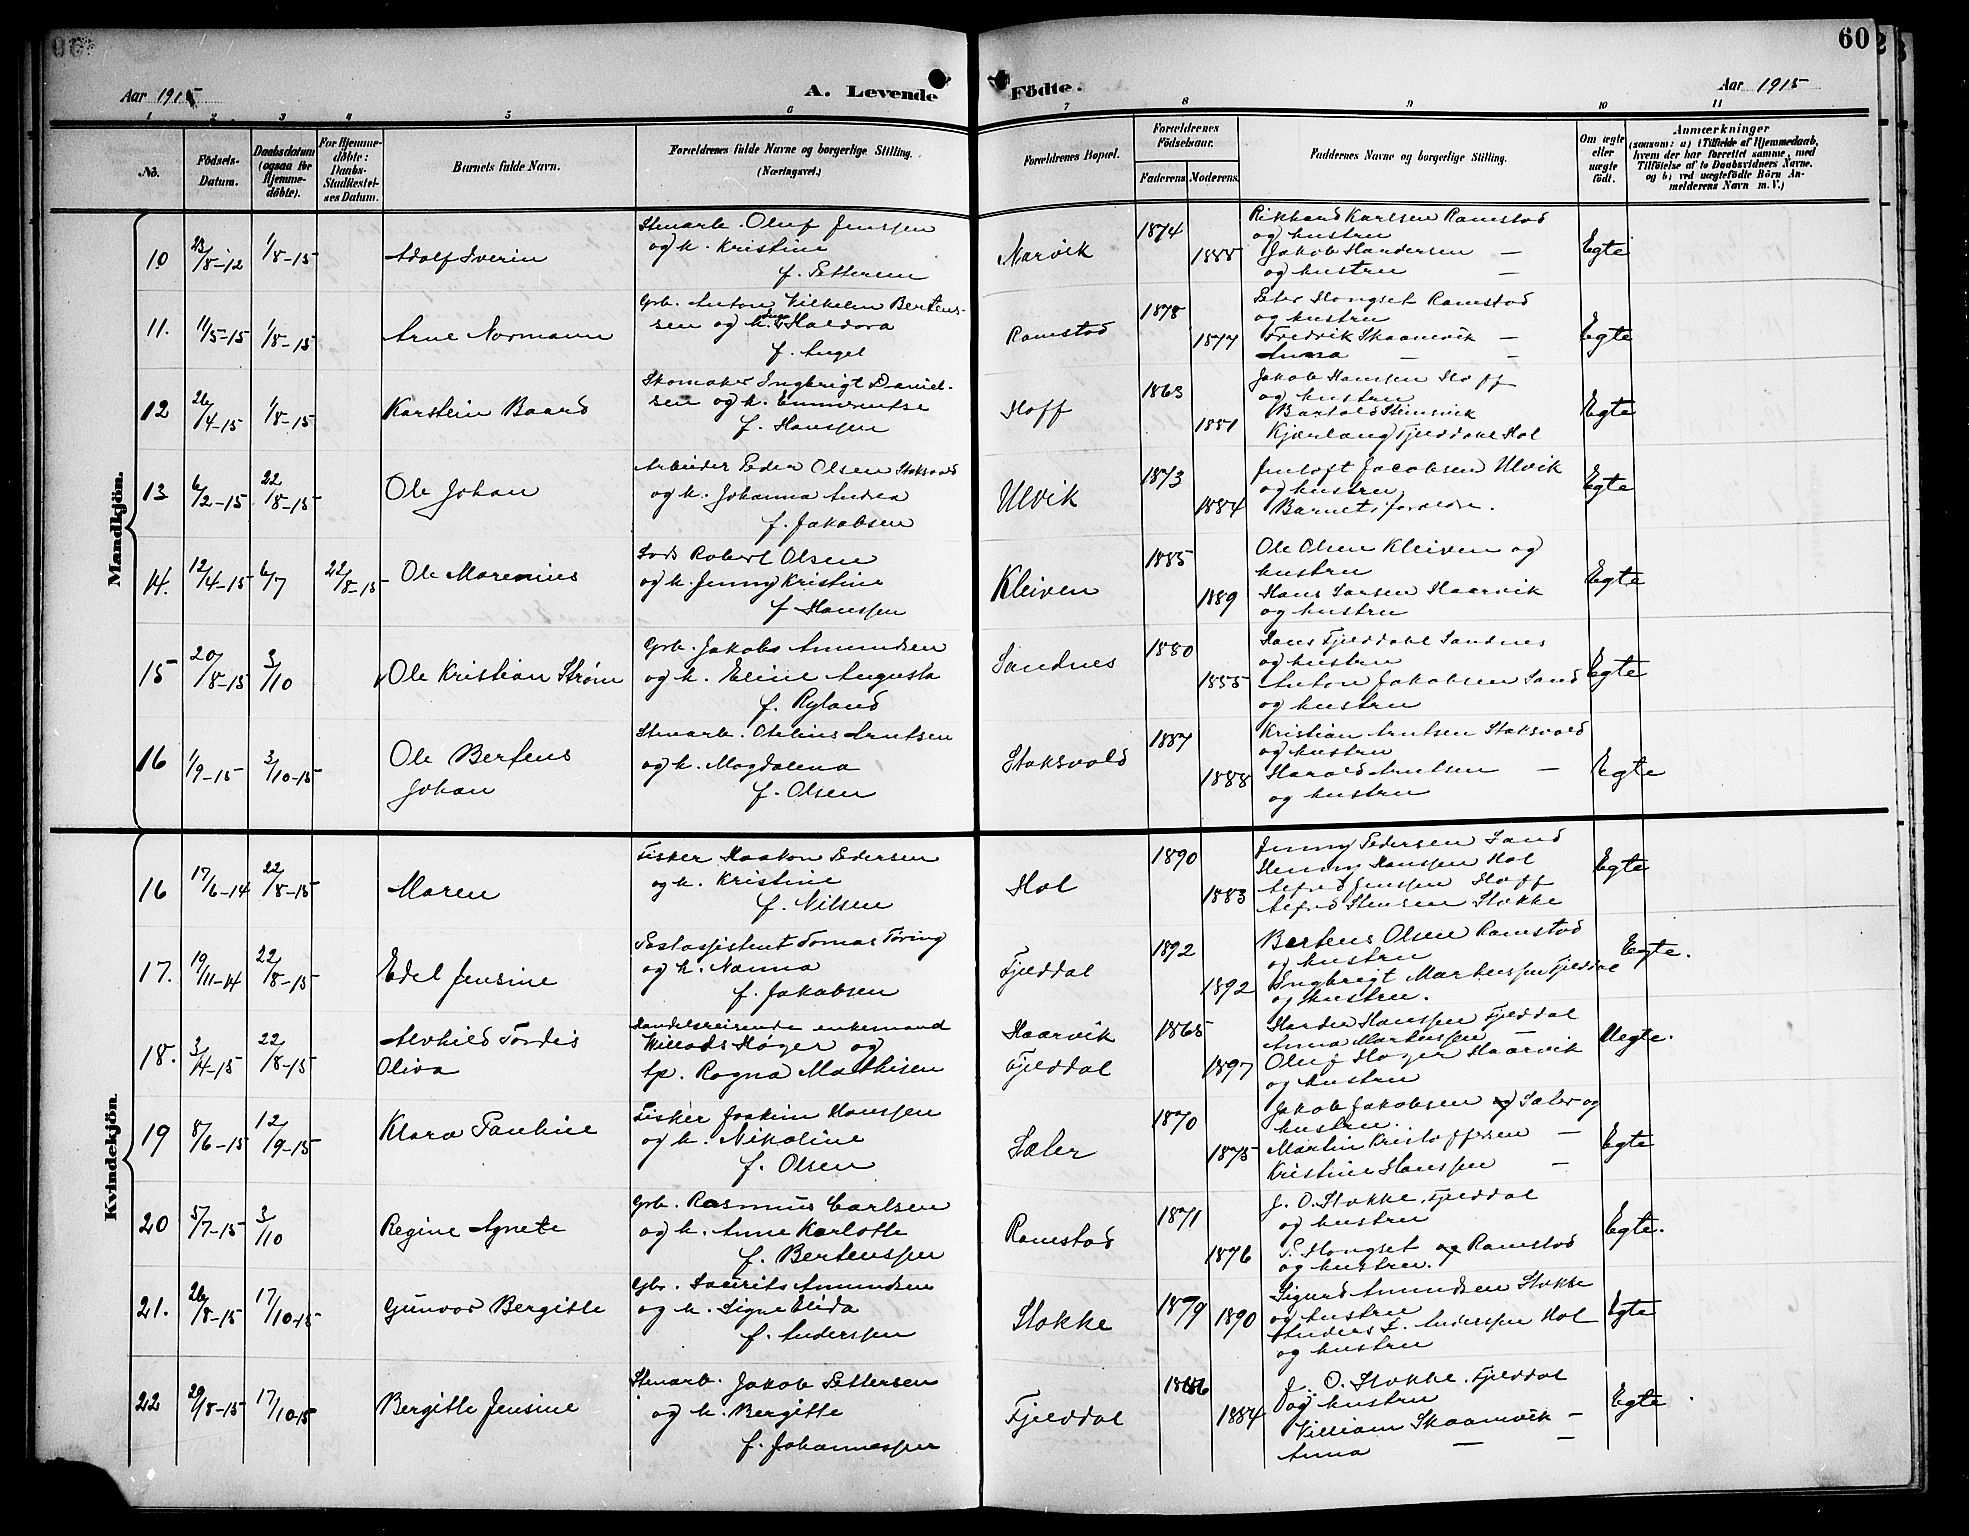 60
Aar 1915
A. Levende
Födte.
Aar 1915
1 2 3 4 5 6 7 8 9 10 11
No.
Födsels-
Datum.
Daabsdatum
(ogsaa for
Hjemme-
döbte).
For Hjemme-
döbte:
Daabs-
Stadfæstel-
ses Datum.
Barnets fulde Navn.
Forældrenes fulde Navne og borgerlige Stilling.
(Næringsvei.)
Forældrenes Bopæl.
Forældrenes
Födselsaar.
Faderens Moderens.
Faddernes Navne og borgerlige Stilling.
Om ægte
eller
uægte
födt.
Anmærkninger
(saasom: a) i Tilfælde af Hjemmedaab,
hvem der har forrettet samme, med
Tilföielse af to Daabsvidners Navne.
og b) ved uægtefödte Börn An-
melderens Navn m. V.)
Mandkjön.
10 23/8-12 1/8-15
Adolf Sverin
Stenarb. Oluf Jenssen
og h. Kristine
f. Pettersen
Narvik
1874
1888
Rikhard Karlsen Ramstad
og hustru
Jakob Handersen —
og hustru —
Egte
11. 11/5-15 1/8-15
Arne Normann
Grb. Anton Vilhelm Bertens-
sen og h. Haldora
f. Angel
Ramstad
1878
1877
Peter Hongset Ramstad
og hustru
Fredrik Skaamvik —
Anna — —
Egte
12 26/4-15 1/8-15
Karstein Baard
Skomaker Ingbrigt Daniel-
sen og h. Emmerentse
f. Hanssen
Hoff
1863
1881
Jakob Hanssen Hoff
og hustru
Bartold Steinsvik
Kjærlaug Fjelddahl Hol
Egte
13 6/2-15 22/8-15
Ole Johan
Arbeider Peder Olsen Stoksvold
og h. Johanna Andrea
f. Jakobsen
Ulvik
1873
1884
Jentoft Jacobsen Ulvik
og hustru
Barnets forældre.
Egte
14. 12/4-15 6/7 22/8-15
Ole Marenius
Lods Robert Olsen
og h. Jenny Kristine
f Hanssen
Kleiven
1885
1889
Ole Olsen Kleiven og
hustru
Hans Larsen Haarvik
og hustru
Egte
15 20/8-15 3/10
Ole Kristian Strøm
Grb. Jakobs Amundsen
og h. Eline Augusta
f. Ryland
Sandnes
1880
1885
Hans Fjelddahl Sandnes
og hustru
Anton Jakobsen Sand
og hustru
Egte
16 1/9-15 3/10-15
Ole Bertens
Johan
Stenarb. Otelius Arntsen
og h. Magdalena
f. Olsen
Stoksvold
1887
1888
Kristian Arntsen Stoksvold
og hustru
Harald Arntsen —
og hustru
Egte
Kvindekjön.
16 17/6-14 22/8-15
Maren
Fisker Haakon Pedersen
og h. Kristine
f. Nilsen
Hol
1890
1883
Jenny Pedersen Sand
Henny Hanssen Hol
Alfred Jenssen Hoff
Alfred Stensen Stokke
Egte
17. 19/11-14 22/8-15
Edel Jensine
Postassistent Tomas Tøring
og h. Nanna
f. Jakobsen
Fjelddal
1892
1892
Bertens Olsen Ramstad
og hustru
Ingbrigt Markussen Fjelddal
og hustru.
Egte.
18. 3/4-15 22/8-15
Alvhild Tordis
Oliva
Handelsreisende enkemand
Willads Høyer og
Tp. Ragna Mathisen
Haarvik
Fjelddal
1865
1897
Hardin Hanssen Fjelddal
Anna Markussen —
Oluf Høyer Haarvik
og hustru
Uegte.
19 8/6-15 12/9-15
Klara Pauline
Fisker Joakim Hanssen
og h. Nikoline
f. Olsen
Sæler
1870
1875
Jakob Jakobsen Sæler og
hustru.
Martin Kristoffersen —
Kristine Hanssen —
Egte
20 5/7-15 3/10
Regine Agnete
Grb. Rasmus Carlsen
og h. Anne Karlotte
f. Bertenssen
Ramstad
1871
1876
J. O. Stokke, Fjelddal
og hustru
P. Hongset Ramstad
og hustru.
Egte.
21. 26/8-15 17/10-15
Gunvor Bergitte
Gbr. Laurits Amundsen
og h. Signe Elida
f. Anderssen
Stokke
1879
1890
Sigurd Amundsen Stokke
og hustru
Anders F. Anderssen Hol
og hustru
Egte
22 29/8-15 17/10-15
Bergitte Jensine
Stenarb. Jakob Pettersen
og h. Bergitte
f. Johannessen
Fjelddal
1886
1884
J. O. Stokke, Fjelddal
og hustru
Villiam Skaamvik —
Anna — —
Egte